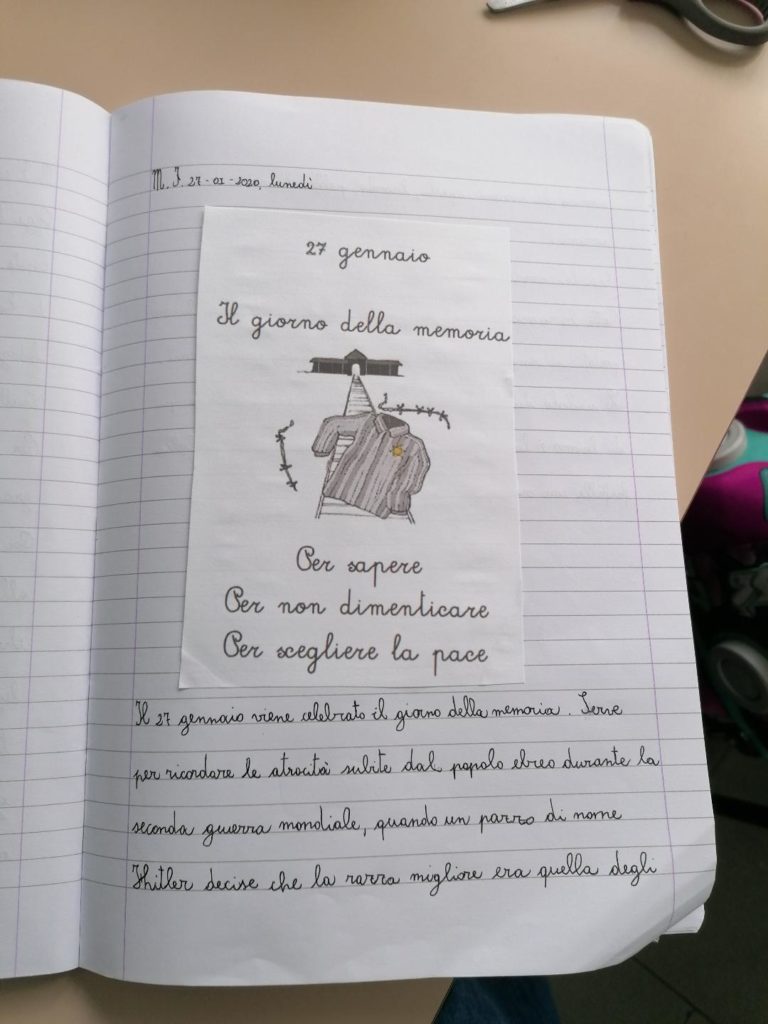 M. I. 27-01-2020, lunedì
27 gennaio
Il giorno della memoria
Per sapere
Per non dimenticare
Per scegliere la pace
Il 27 gennaio viene celebrato il giorno della memoria. Serve
per ricordare le atrocità subite dal popolo ebreo durante la
seconda guerra mondiale, quando un pazzo di nome
Hitler decise che la razza migliore era quella degli